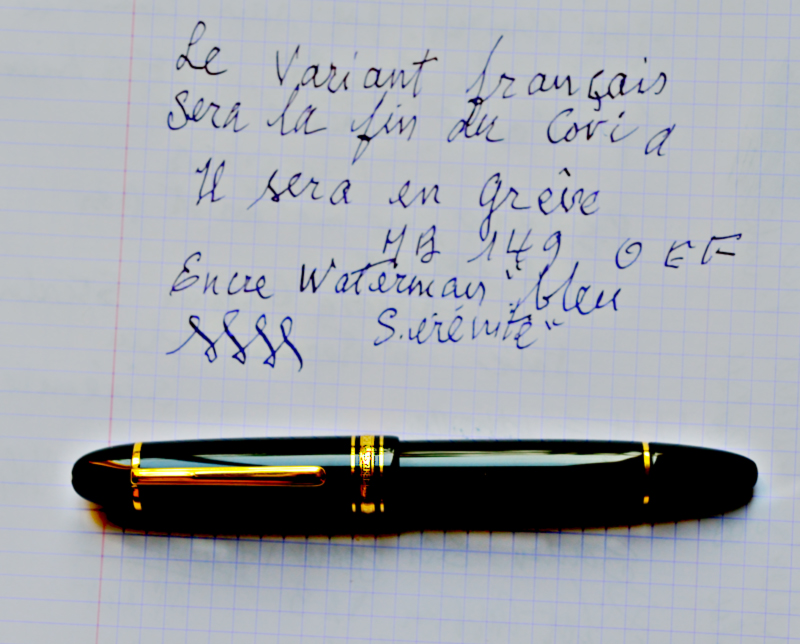 Le Variant français
sera la fin du Covid
Il sera en grève
MB 149 OEF
Encre Waterman "bleu
Sérénité"